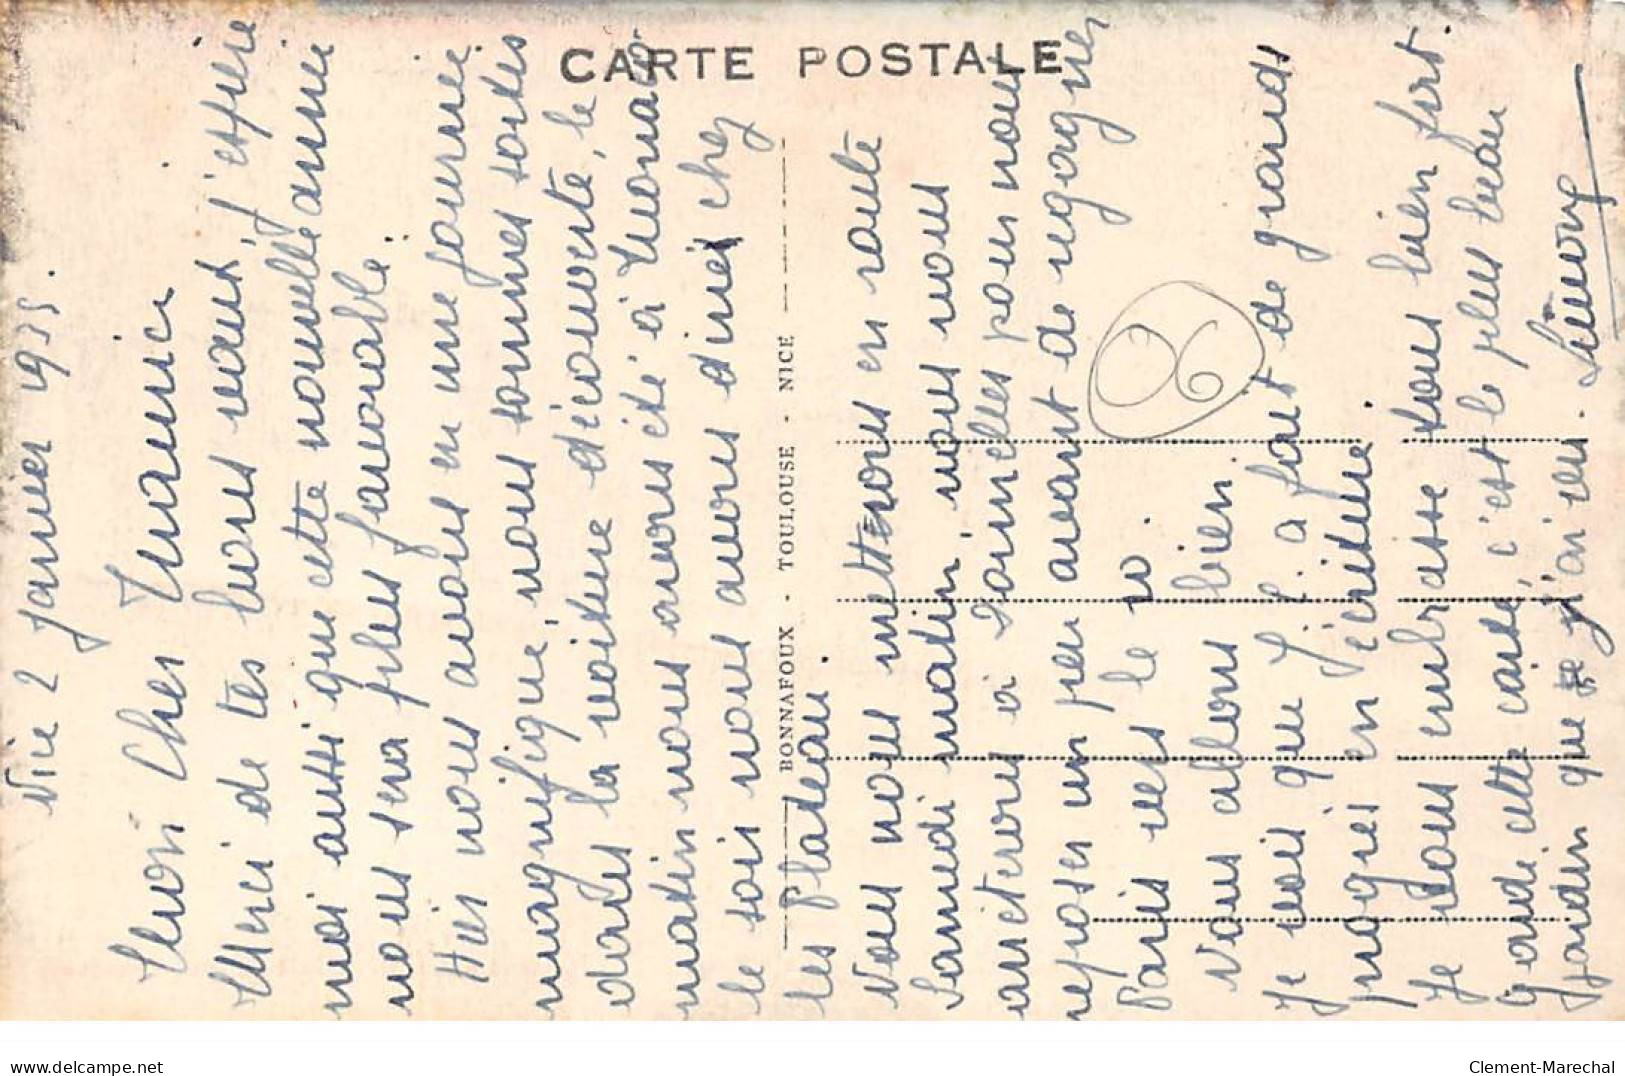 CARTE POSTALE
Nice 2 Janvier 1935.
Mon Cher Mamici
Merci de tes bons vœux, j'espère
moi aussi que cette nouvelle année
nous sera plus favorable.
Hier nous avons eu une journée
magnifique, nous sommes sortis
dans la voiture découverte, le
matin nous avons été à Monaco
le soir nous avons diner chez
les Pladeau.
Nous nous metterons en route
Samedi matin, nous nous
arrêterons à pour nous
reposer un peu avant de regagner
Paris vers le 10.
Nous allons bien.
Je vois que J. a fait de grands
progrès en écriture.
Je vous embrasse tous bien fort.
Garde cette carte, c'est le plus beau
Jardin que j'ai vu.
BONNAFOUX - TOULOUSE - NICE
86
www.delcampe.net
Clement-Marechal